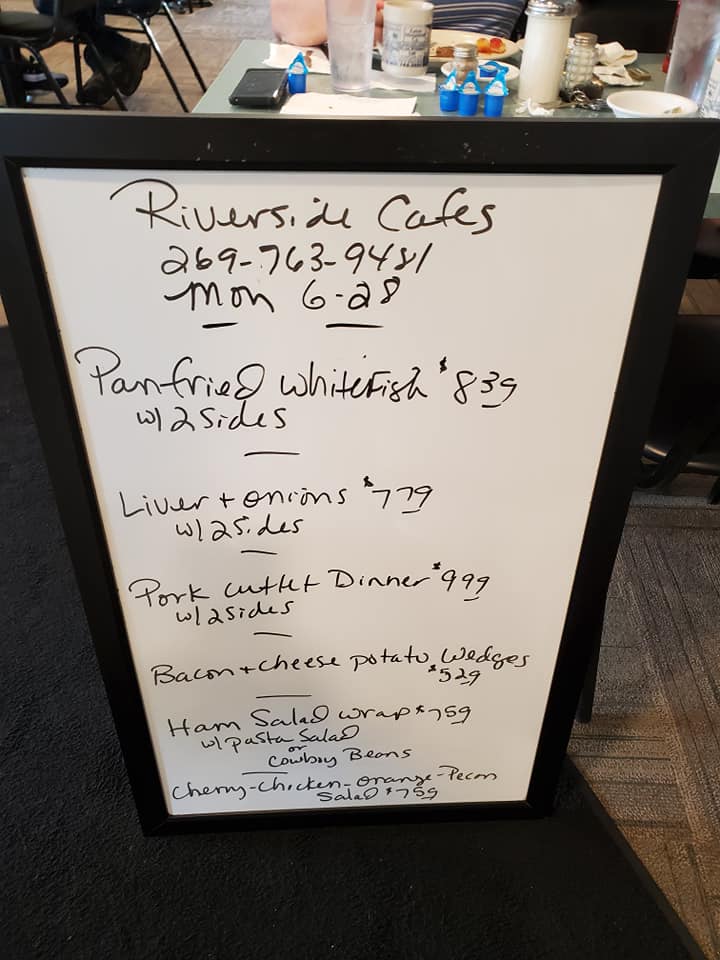 Riverside Cafes
269-763-9481
Mon 6-28
Panfried Whitefish $839
w/2 Sides
Liver + onions $779
w/2 Sides
Pork cutlet Dinner $999
w/2 sides
Bacon + cheese potato Wedges
$529
Ham Salad wrap $759
w/ pasta Salad
or
Cowboy Beans
Cherry-Chicken-orange-Pecan
Salad $759